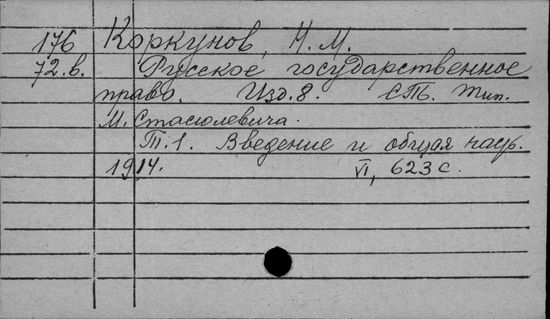 176 Коркунов, Н. М.
72.в. Русское государственное
право. Изд. 8. СПб. Тип.
М. Стасюлевича.
Т. 1. Введение и общая
1914. VI, 623 с.